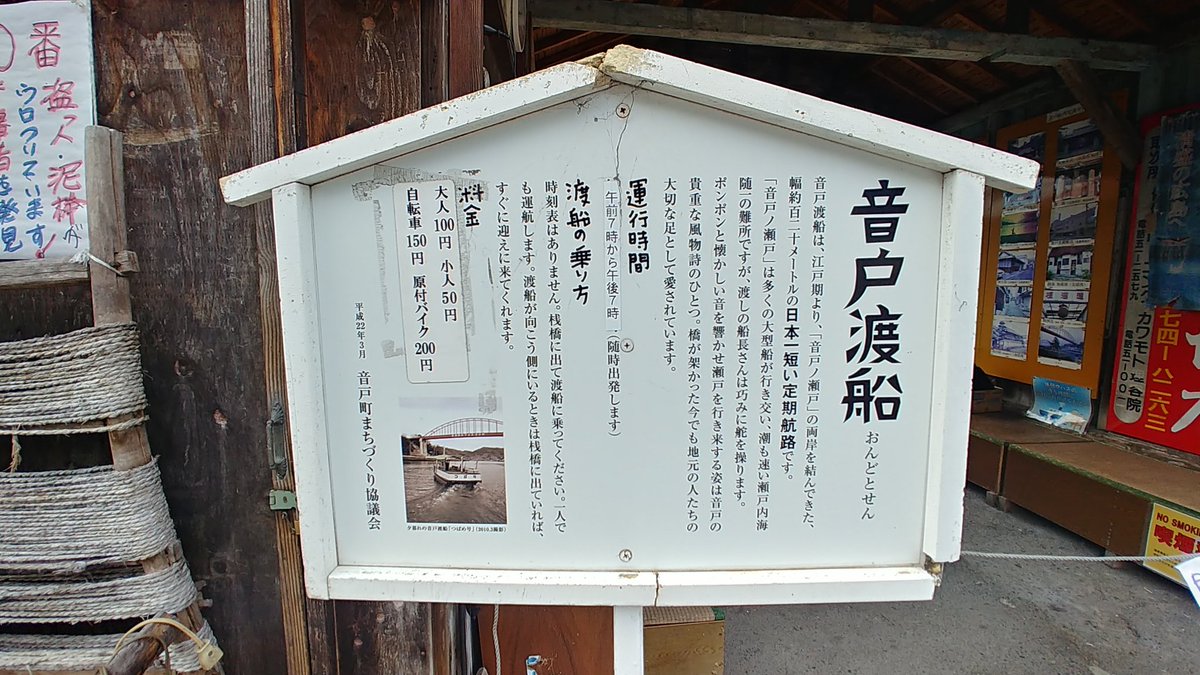 音戸渡船
おんどとせん
音戸渡船は、江戸期より、「音戸ノ瀬戸」の両岸を結んできた、
幅約百二十メートルの日本一短い定期航路です。
「音戸ノ瀬戸」は多くの大型船が行き交い、潮も速い瀬戸内海
随一の難所ですが、渡しの船長さんは巧みに舵を操ります。
ポンポンと懐かしい音を響かせ瀬戸を行き来する姿は音戸の
貴重な風物詩のひとつ。橋が架かった今でも地元の人たちの
大切な足として愛されています。
運行時間
午前7時から午後7時 (随時出発します)
渡船の乗り方
時刻表はありません。桟橋に出て渡船に乗ってください。一人で
も運航します。渡船が向こう側にいるときは桟橋に出ていれば、
すぐに迎えに来てくれます。
料金
大人100円 小人50円
自転車150円 原付バイク200円
夕暮れの音戸渡船「つばめ号」(2010.3撮影)
平成22年3月 音戸町まちづくり協議会
番盗人・泥棒が
ウロツいています
NO SMOKI
喫煙
七四-八二六三
カワモト